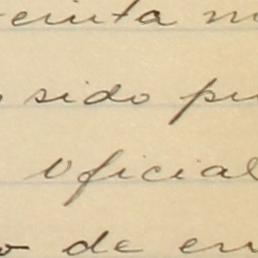 einta m
sido pu
oficial
o de en